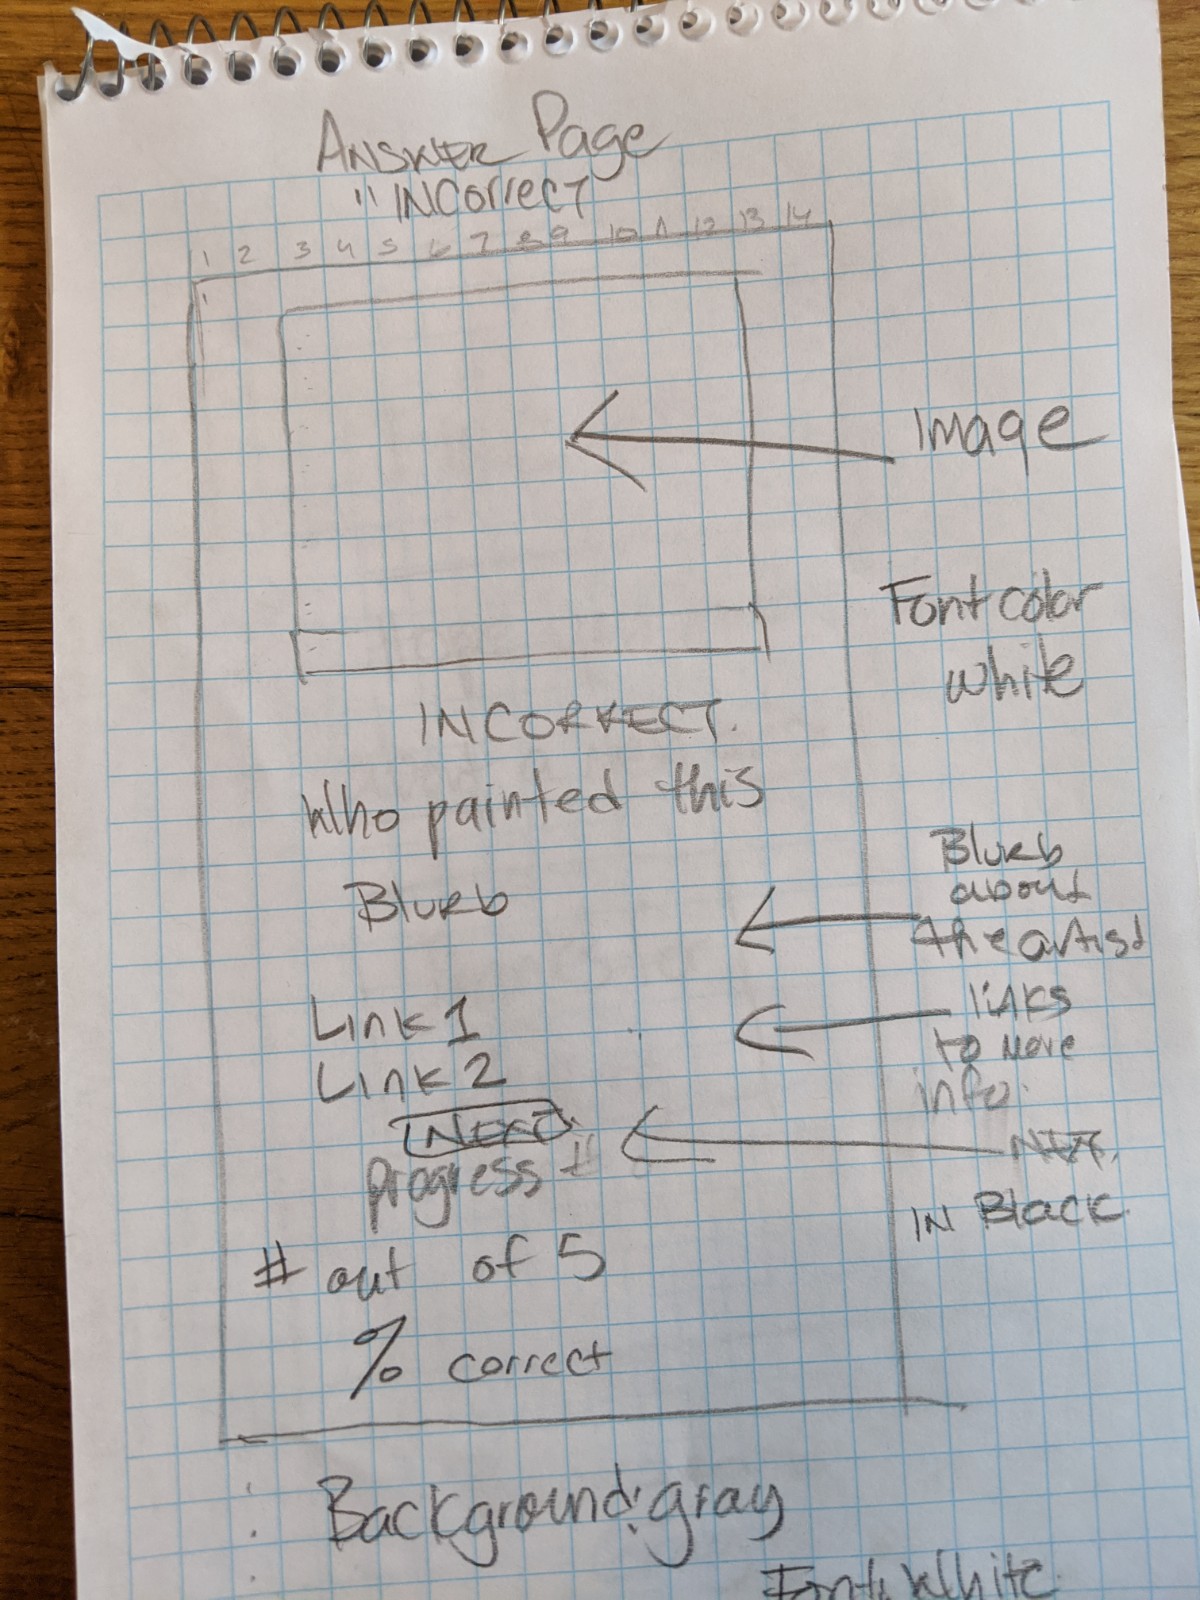 Answer Page
"INCorrect
1 2 3 4 5 6 7 8 9 10 11 12 13 14
Image
Font color
white
INCORRECT.
Who painted this
Blurb
Blurb
about
the artist
Link 1
Link 2
links
to more
info.
NEXT
NEXT.
progress #
IN Black
# out of 5
% correct
Background: gray
Font: White